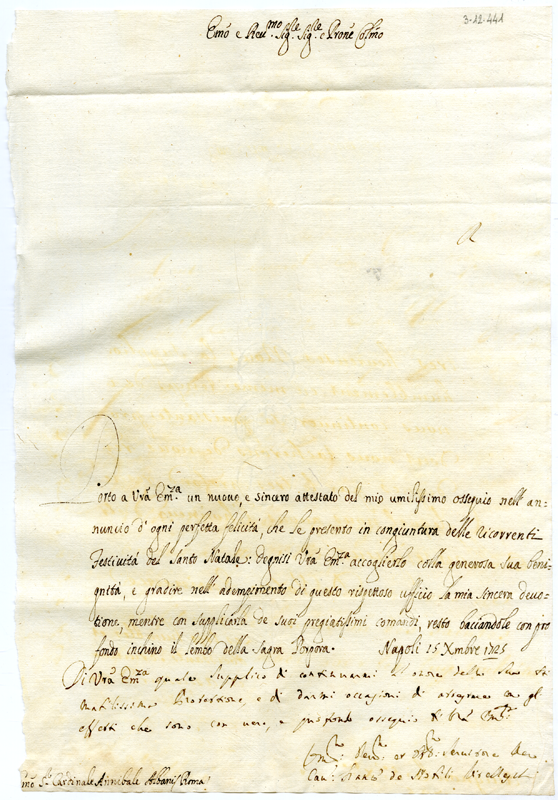 3-12-441
Emo e Reu.mo Sig.e Sig.e e Prone Colmo
R
Porto a Vrã Em.za un nuouo, e sincero attestato del mio umilissimo ossequio nell'an=
nuncio d'ogni perfetta felicità, che le presento in congiuntura delle ricorrenti
Festiuità del Santo Natale: degnisi Vrã Em.za accoglierlo colla generosa sua beni=
gnità, e gradire nell'adempimento di questo rispettoso ufficio la mia sincera deuo=
tione, mentre con supplicarla de suoi pregiatissimi comandi, resto baciandole con pro
fondo inchino il lembo della Sagra Porpora. Napoli 15 Xmbre 1725
Di Vrã Em.za quale supplico di continuarmi l'onore della Sua
Protettione, e di darmi occasioni di
effetti che sono con uero, e profondo ossequio di Vrã Em.za
Sr Cardinale Annibale Albani Roma